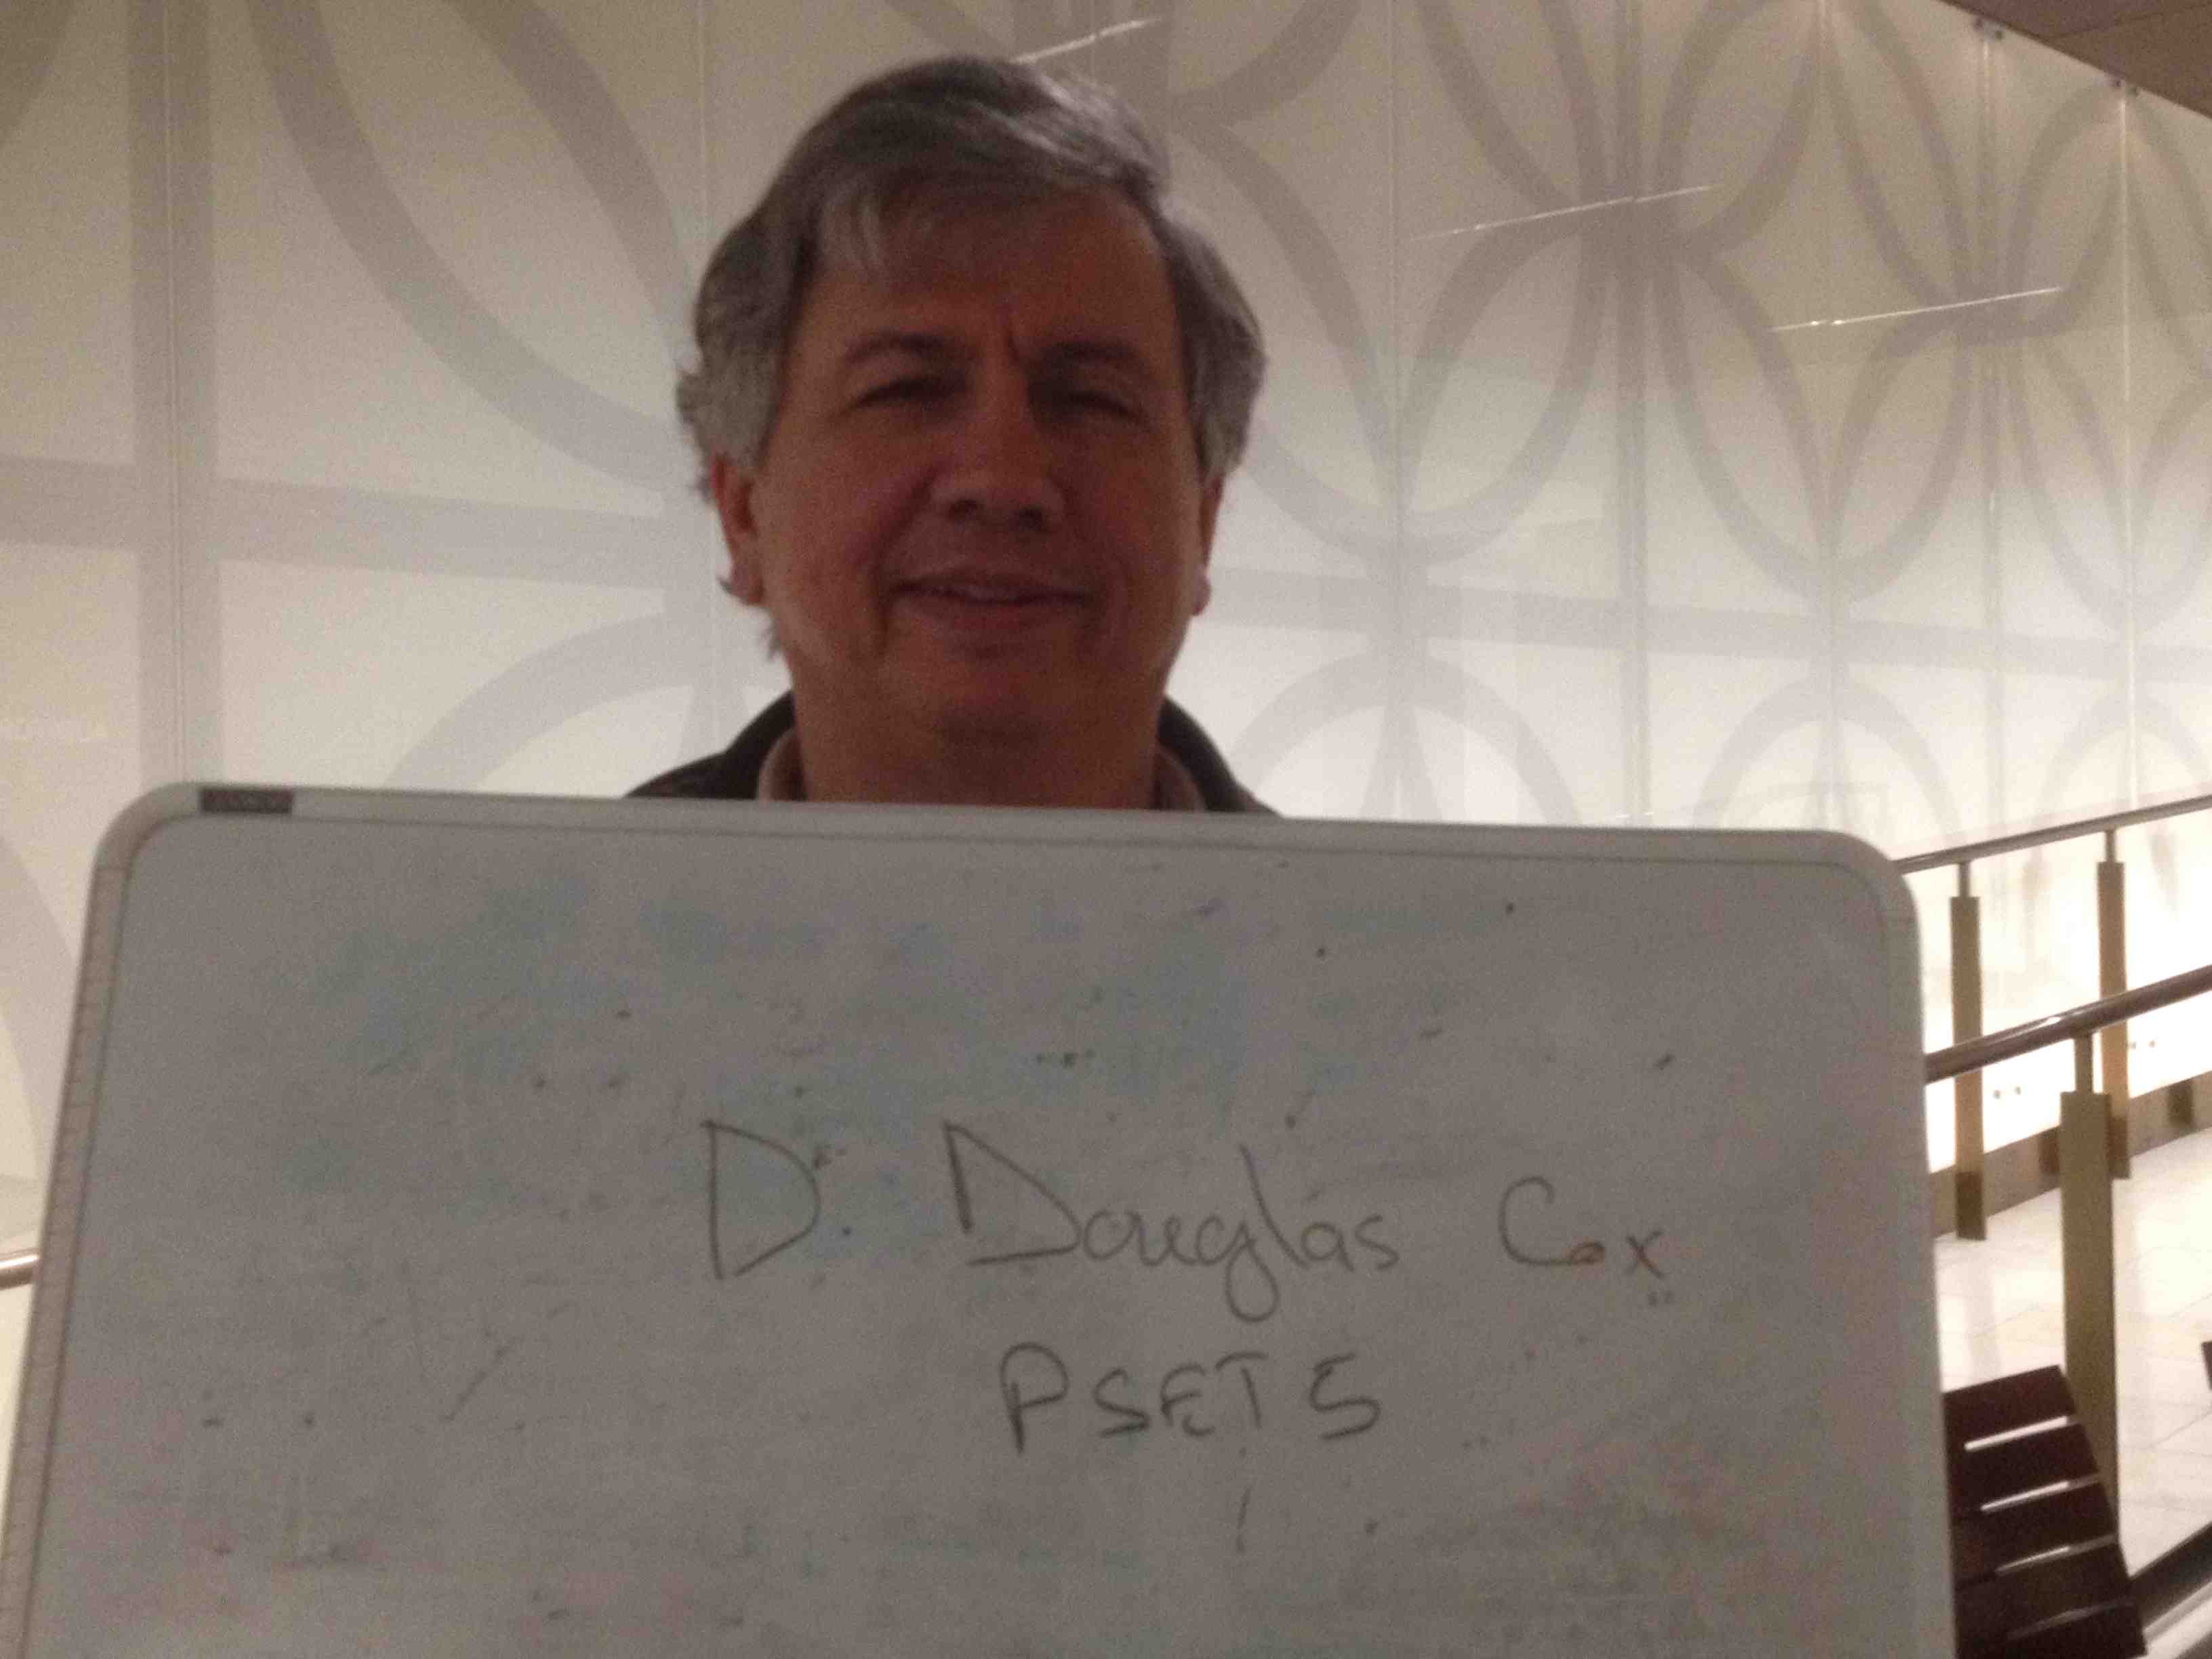 D. Douglas Cox
PSET 5